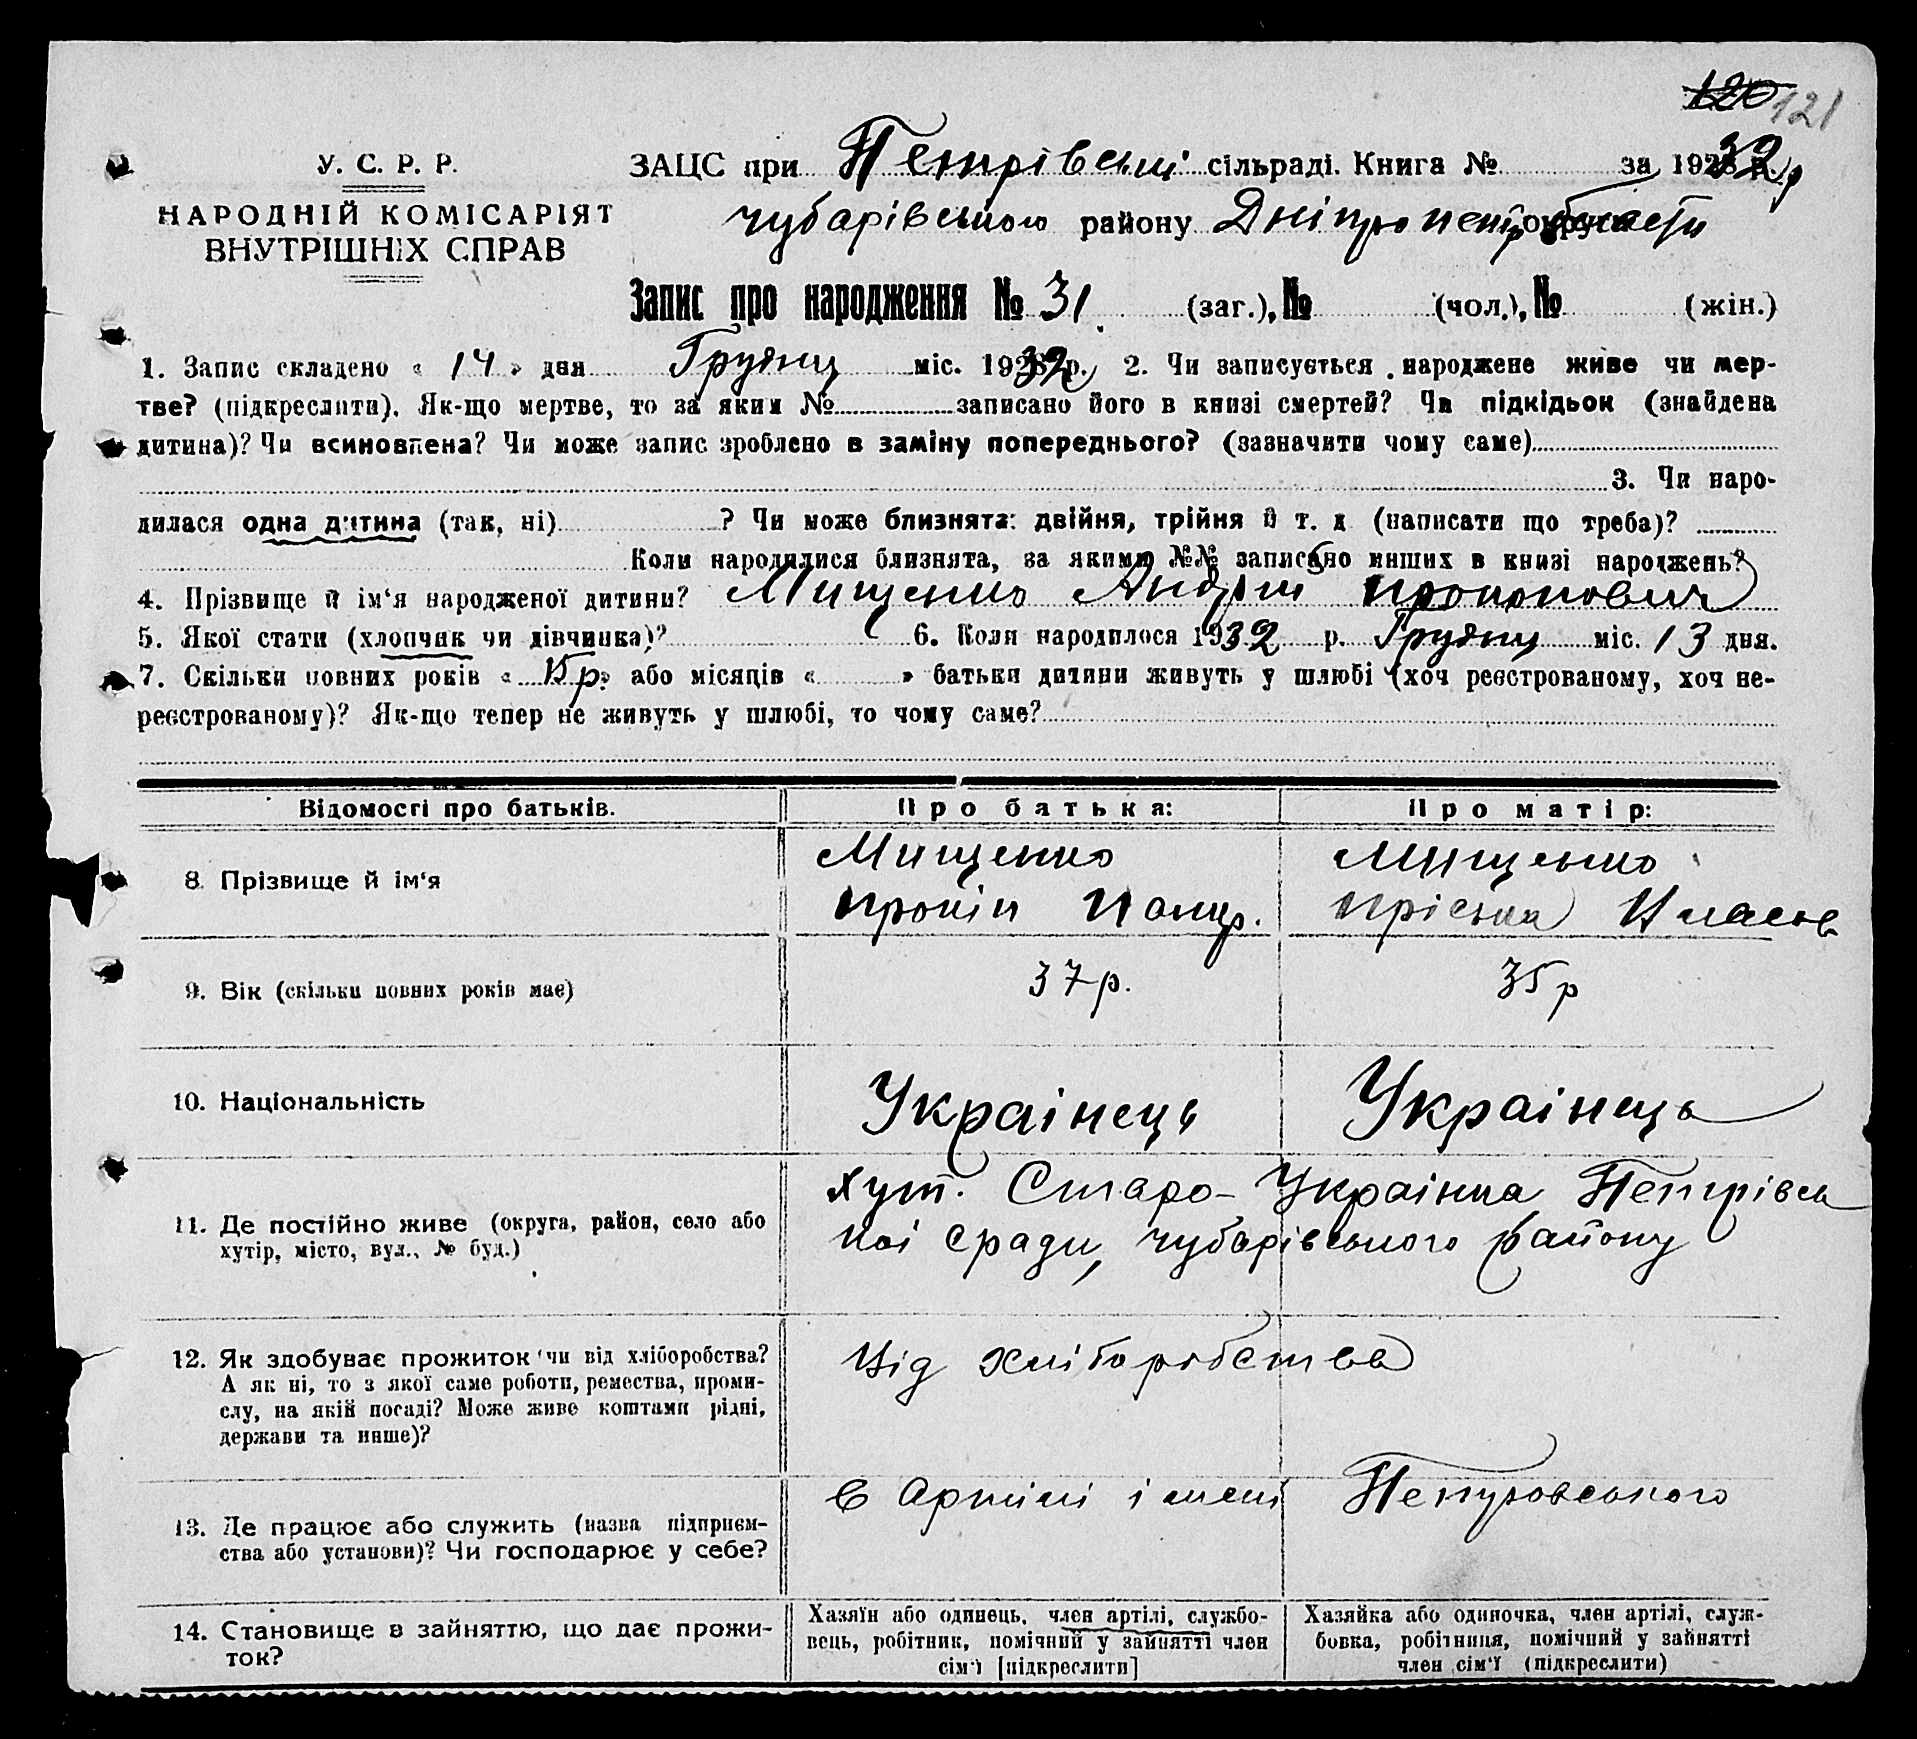 120 121
У. С. Р. Р.
НАРОДНІЙ КОМІСАРІЯТ
ВНУТРІШНІХ СПРАВ
ЗАЦС при Петрівські сільраді. Книга № за 1932 р
Чубарівського району Дніпропетр области
Запис про народження № 31 (заг.), № (чол.), № (жін.)
1. Запис складено « 14 » дня Грудня міс. 1932 р. 2. Чи записується народжене живе чи мер-
тве? (підкреслити). Як-що мертве, то за яким № записано його в книзі смертей? Чи підкідьок (знайдена
дитина)? Чи всиновлена? Чи може запис зроблено в заміну попереднього? (зазначити чому саме)
3. Чи наро-
дилася одна дитина (так, ні) ? Чи може близнята: двійня, трійня й т. д (написати що треба)?
Коли народилися близнята, за якими №№ записано инших в книзі народжень?
4. Прізвище й ім‘я народженої дитини? Мищенко Андрій Прокопович
5. Якої стати (хлопчик чи дівчинка)? 6. Коли народилося 1932 р. Грудня міс. 13 дня.
7. Скільки повних років « 15 р. » або місяців « » батьки дитини живуть у шлюбі (хоч реєстрованому, хоч не-
реєстрованому)? Як-що тепер не живуть у шлюбі, то чому саме?
Відомості про батьків. Про батька: Про матір:
8. Прізвище й ім‘я
Мищенко
Прокіп
Мищенко
Пріська
9. Вік (скільки повних років має) 37 р. 35 р
10. Національність Українець Українець
11. Де постійно живе (округа, район, село або
хутір, місто, вул., № буд.)
Хут. Старо-Українка Петрівсь
кої сради, Чубарівського району
12. Як здобуває прожиток чи від хліборобства?
А як ні, то з якої саме роботи, ремества, проми-
слу, на якій посаді? Може живе коштами рідні,
держави та инше)?
Від хліборобства
13. Де працює або служить (назва підприєм-
ства або установи)? Чи господарює у себе?
в Артілі імені Петровського
14. Становище в зайняттю, що дає прожи-
ток?
Хазяїн або одинець, член артілі, службо-
вець, робітник, помічний у зайнятті член
сім‘ї [підкреслити]
Хазяйка або одиночка, член артілі, служ-
бовка, робітниця, помічний у зайнятті
член сім‘ї (підкреслити)